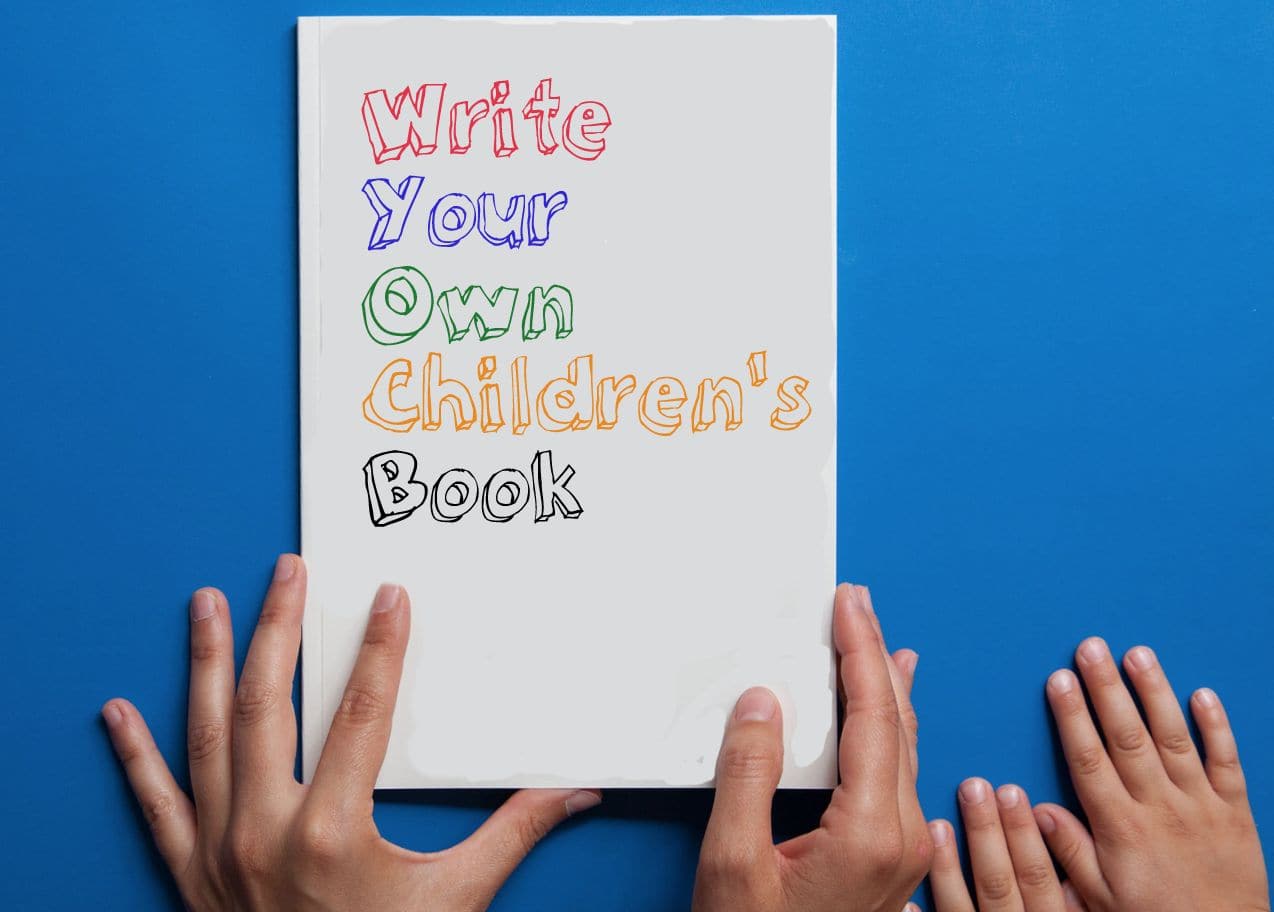 Write
Your
Own
Children's
Book